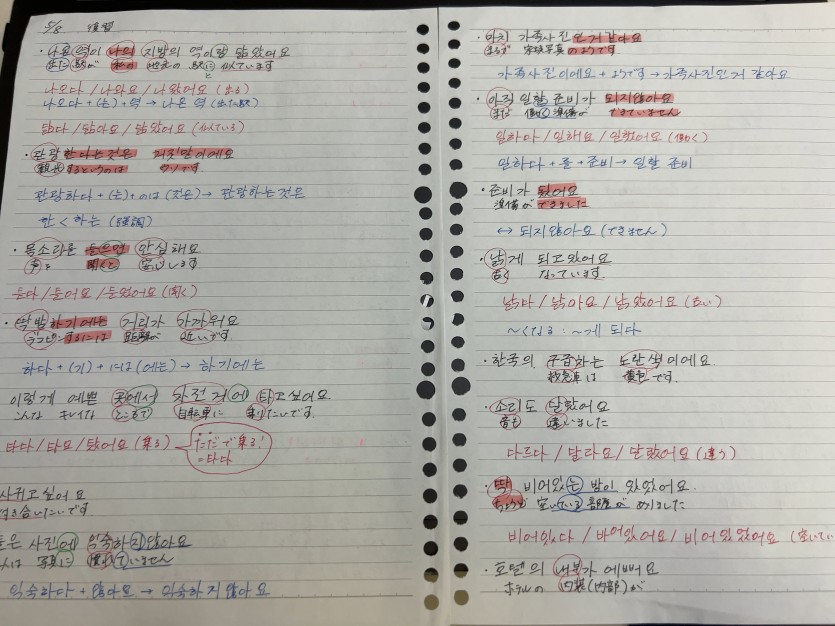 5/8 復習
・나온 역이 나의 지방의 역이랑 닮았어요
出た 駅が 私の 地元の 駅に と 似ています
나오다 / 나와요 / 나왔어요 (出る)
나오다 + (는) + 역 → 나온 역 (出た駅)
닮다 / 닮아요 / 닮았어요 (似ている)
・관람한다는것은 거짓말이에요
観光するというのは ウソです
관람하다 + (는) + のは (것은) → 관람하는 것은
한 < 하는 (強調)
・목소리를 들으면 안심해요
声を 聞くと 安心します
듣다 / 들어요 / 들었어요 (聞く)
・랩핑하기에는 거리가 가까워요
ラッピングするには 距離が 近いです.
하다 + (기) + には (에는) → 하기에는
이렇게 예쁜 곳에서 자전거에 타고싶어요.
こんな キレイな ところで 自転車に 乗りたいです.
타다 / 타요 / 탔어요 (乗る)
「ただで乗る」
=타다
사귀고싶어요
付き合いたいです
들은 사진에 익숙하지않아요
人は 写真に 慣れていません
익숙하다 + 않아요 → 익숙하지않아요
・마치 가족사진인거같아요
まるで 家族写真のようです.
가족사진이에요 + ようです → 가족사진인거 같아요
・아직 일할 준비가 되지않아요
まだ 働く準備が できていません
일하다 / 일해요 / 일했어요 (働く)
일하다 + 를 + 준비 → 일할 준비
・준비가 됐어요
準備ができました
↔ 되지않아요 (できません)
・낡게 되고있어요
古く なっています.
낡다 / 낡아요 / 낡았어요 (古い)
〜くなる : 〜게 되다
・한국의 구급차는 노란색이에요.
救急車は 黄色です.
・소리도 달랐어요
音も 違いました
다르다 / 달라요 / 달랐어요 (違う)
・딱 비어있는 방이 있었어요.
ちょうど 空いている 部屋が ありました
비어있다 / 비어있어요 / 비어있었어요 (空いてい
・호텔의 내부가 예뻐요
ホテルの 内装 (内部) が